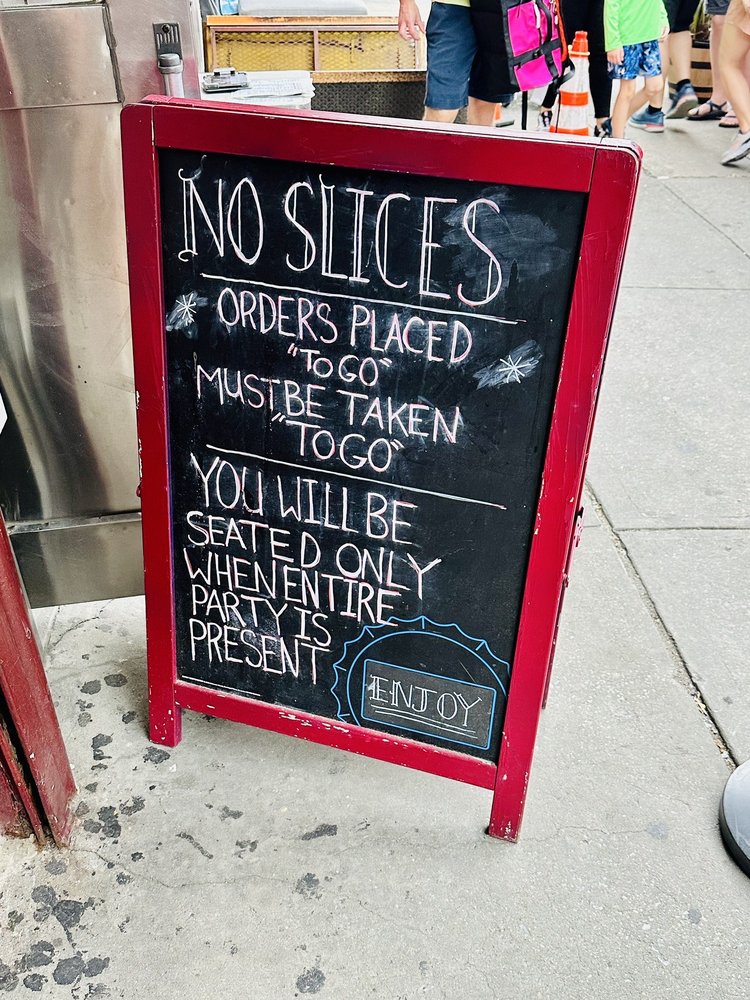 NO SLICES
ORDERS PLACED
"TO GO"
MUST BE TAKEN
"TO GO"
YOU WILL BE
SEATED ONLY
WHEN ENTIRE
PARTY IS
PRESENT
ENJOY